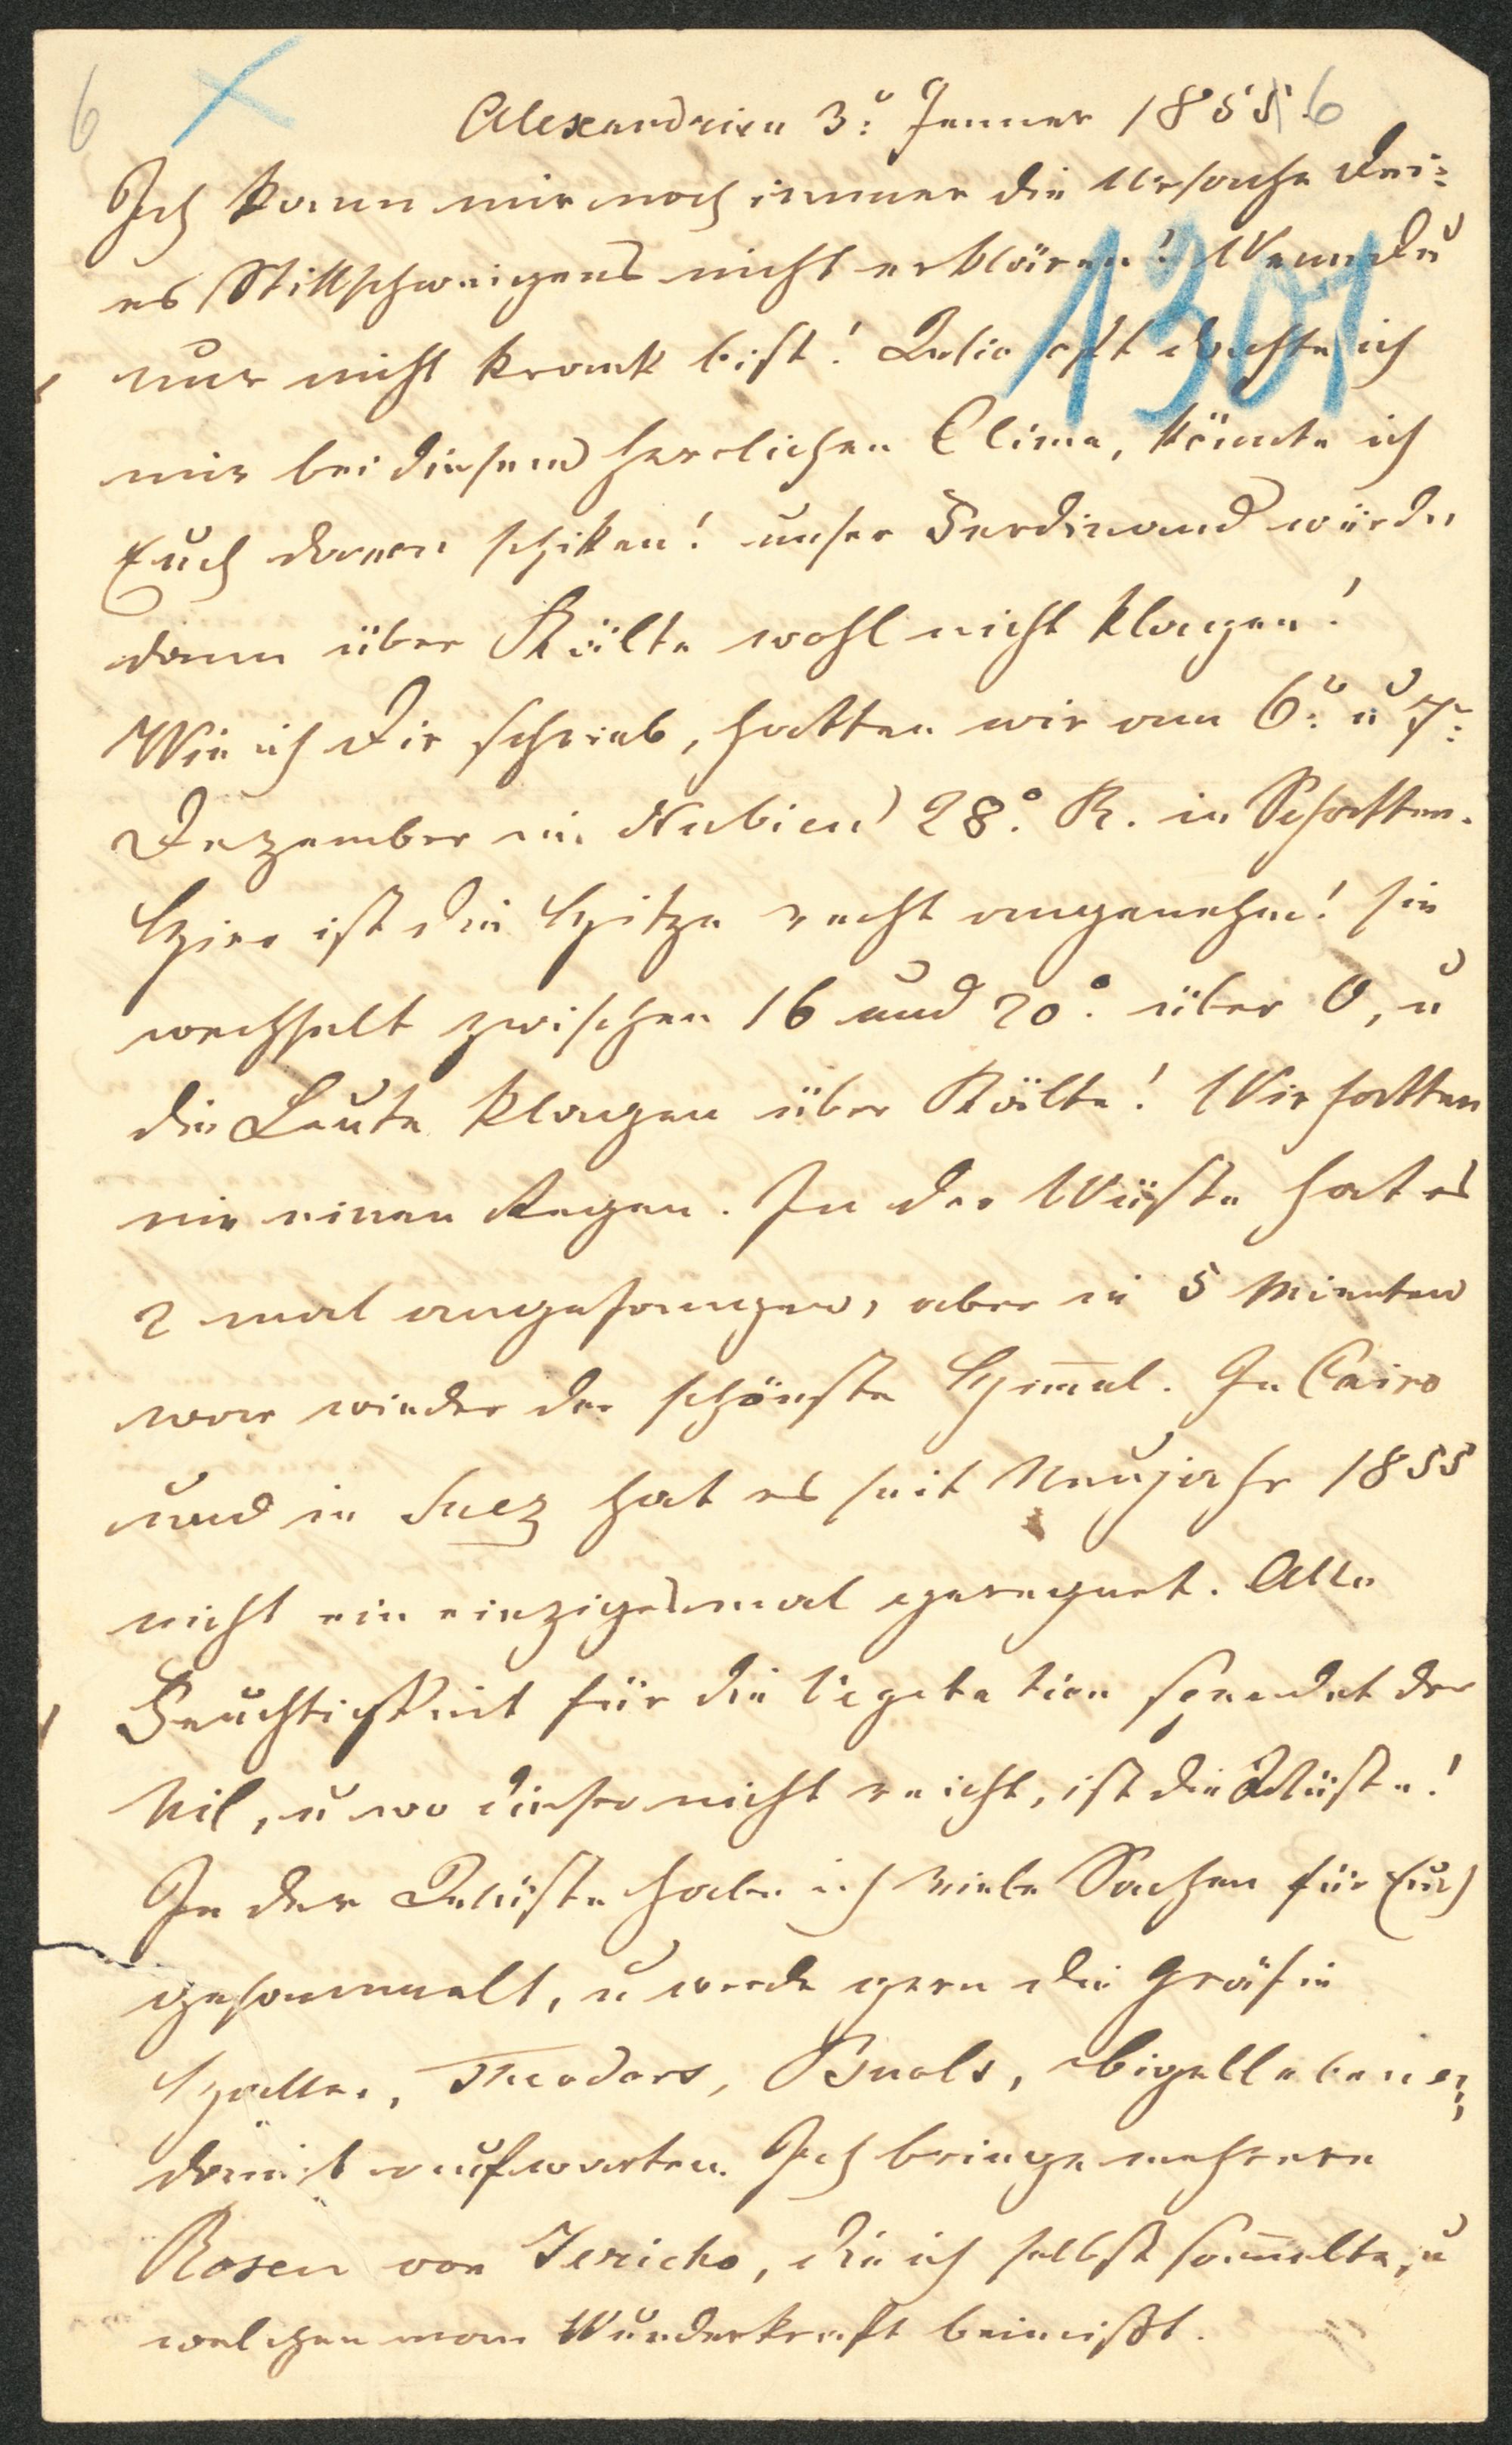 6
Alexandrien 3: Jenner 1855 6
1301
Ich kann mir noch immer die Ursache Dei:
es Stillschweigens nicht erklären! Wenn Du
nur nicht krank bist! Wie oft dachte ich
mir bei diesem herrlichen Clima, könnte ich
Euch davon schiken! unser Ferdinand würde
dann über Kälte wohl nicht klagen!
Wie ich Dir schrieb, hatten wir am 6: u 7:
Dezember in Nubien 28°. R. in Schatten.
Hier ist die Hitze recht angenehm! sie
wechselt zwischen 16 und 20°. über 0, u
die Leute klagen über Kälte! Wir hatten
nie einen Regen. In der Wüste hat es
2 mal angefangen, aber in 5 Minuten
war wieder der schönste Him̄el. In Cairo
und in Suez hat es seit Neujahr 1855
nicht ein einzigesmal geregnet. Alle
Feuchtigkeit für die Vegetation spendet der
Nil, u wo dieser nicht reicht, ist die Wüste!
In der Wüste habe ich viele Sachen für Euch
gesammelt, u werde gern die Gräfin
Haller, Theodors, Buols,
damit aufwarten. Ich bringe mehrere
Rosen von Jericho, die ich selbst sam̄elte, u
welchen man Wunderkraft beimißt.